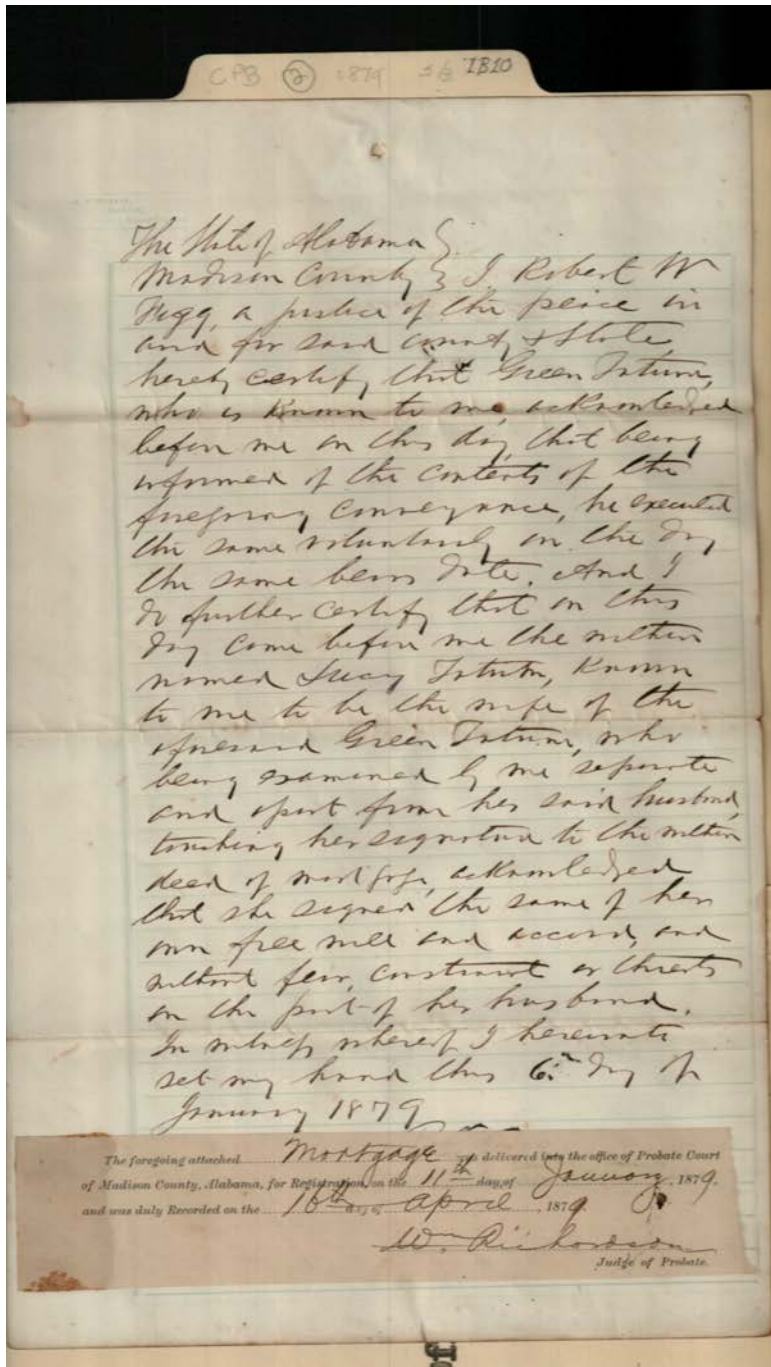 CPB 2 1879 1B10
The State of Alabama }
Madison County } I, Robert W
Figg, a justice of the peace in
and for said county & State,
hereby certify that Green Tatum,
who is known to me, acknowledged
before me on this day, that being
informed of the contents of the
foregoing conveyance, he executed
the same voluntarily on the day
the same bears date. And I
do further certify that on this
day came before me the within
named Lucy Tatum, known
to me to be the wife of the
aforesaid Green Tatum, who
being examined by me separate
and apart from her said husband,
touching her signature to the within
deed of mortgage, acknowledged
that she signed the same of her
own free will and accord, and
without fear, constraint or threats
on the part of her husband.
In witness whereof I hereunto
set my hand this 6th day of
January 1879
The foregoing attached Mortgage was delivered into the office of Probate Court
of Madison County, Alabama, for Registration, on the 11th day of January, 1879.
and was duly Recorded on the 16th day of April, 1879.
W. Richardson
Judge of Probate.
of